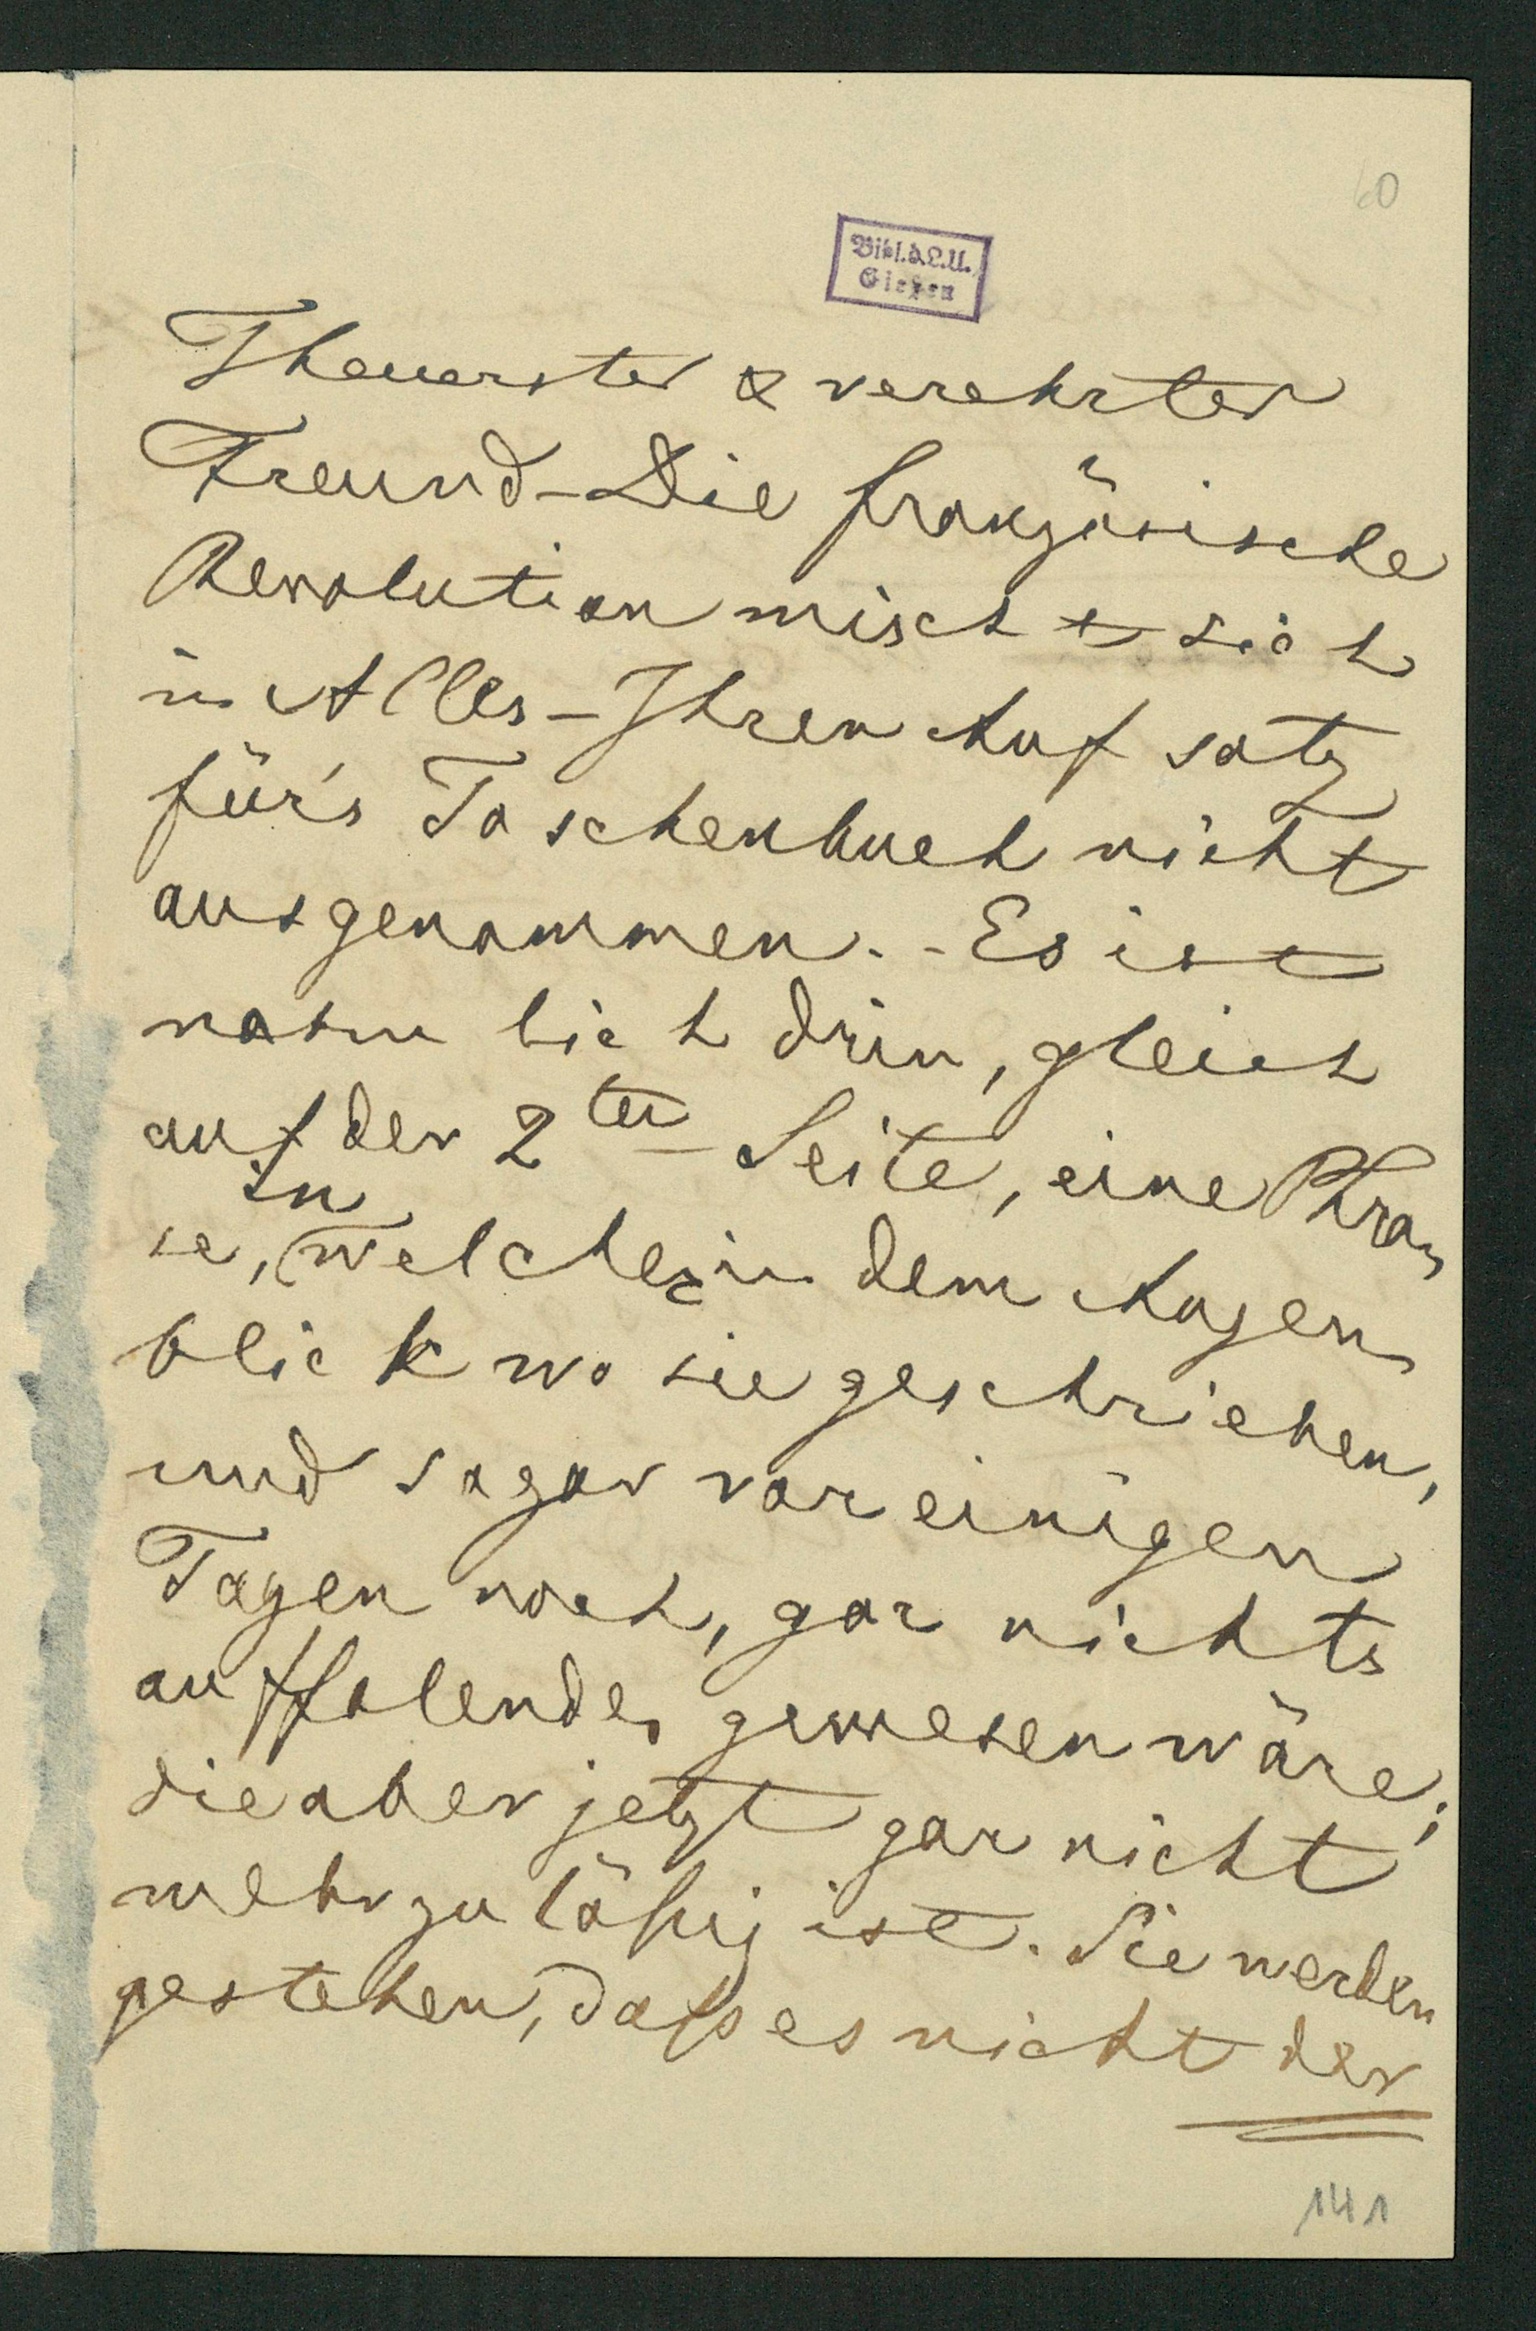 60
Bibl. d. L. U.
Gießen
Theuerster & verehrter
Freund – Die französische
Revolution mischt sich
in Alles – Ihren Aufsatz
für's Taschenbuch nicht
ausgenommen. – Es ist
nahmlich drin, gleich
auf der 2ten Seite, eine Phra
se, in welcher in dem Augen
blick wo sie geschrieben,
und sogar vor einigen
Tagen noch, gar nichts
auffalendes gewesen wäre;
die aber jetzt gar nicht
mehr zuläßig ist. Sie werden
gestehen, daß es nicht der
141